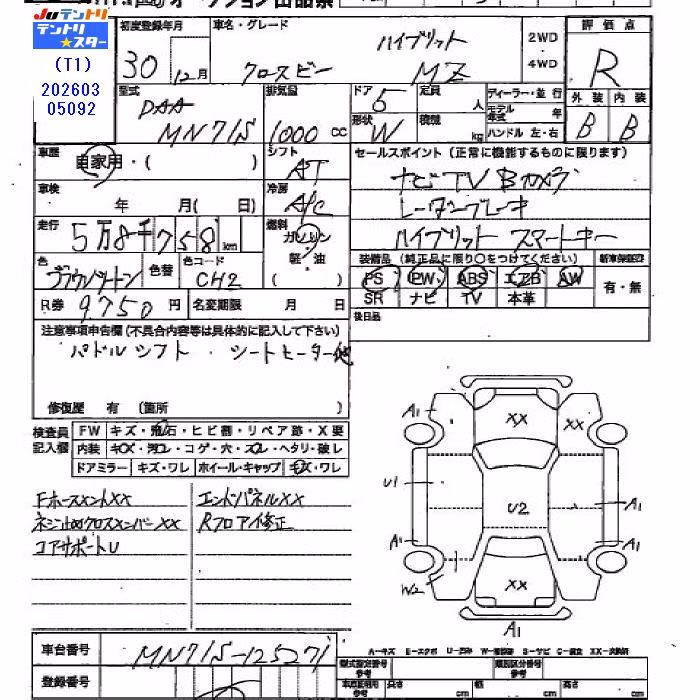 Juテントリ
テントリ★スター
(T1)
202603
05092
初度登録年月
30 12月
車名・グレード
ハイブリット
クロスビー MZ
2WD
・
4WD
評価点
R
外装 内装
B B
型式
DAA
MN71S
排気量
1000 cc
ドア 5
定員 人
形状 W
積載 kg
ディーラー・並行
モデル年式 年
ハンドル 左・右
車歴
自家用・( )
シフト
AT
セールスポイント(正常に機能するものに限ります)
ナビ TV Bカメラ
レーダーブレーキ
ハイブリット スマートキー
車検
年 月( 日)
冷房
A/C
走行
5万8千758km
燃料
ガソリン
軽・油
( )
色
ブラウンツートン
色替
色コード
CH2
装備品(純正品に限り○をつけてください)
PS PW ABS エアB AW
SR ナビ TV 本革
新車保証書
有・無
R券 9,750円
名変期限 月 日
後日品
注意事項申告欄(不具合内容等は具体的に記入して下さい)
パドルシフト・シートヒーター他
修復歴 有 (箇所 )
検査員記入欄
FW キズ・飛石・ヒビ割・リペア跡・X要
内装 キズ・汚コ・コゲ・穴・スレ・ヘタリ・破レ
ドアミラー キズ・ワレ ホイール・キャップ キズ・ワレ
FホースメントXX
エンドパネルXX
ネジ止めクロスメンバーXX
Rフロア修正
コアサポートU
A1
XX
XX
U1
U2
A1
A1
A1
W2
XX
A1
車台番号
MN71S-125271
登録番号
A-キズ E-エクボ U-凹み W-補修跡 S-サビ C-腐食 XX-交換済
型式指定番号 参考
類別区分番号 参考
長さ cm
幅 cm
高さ cm